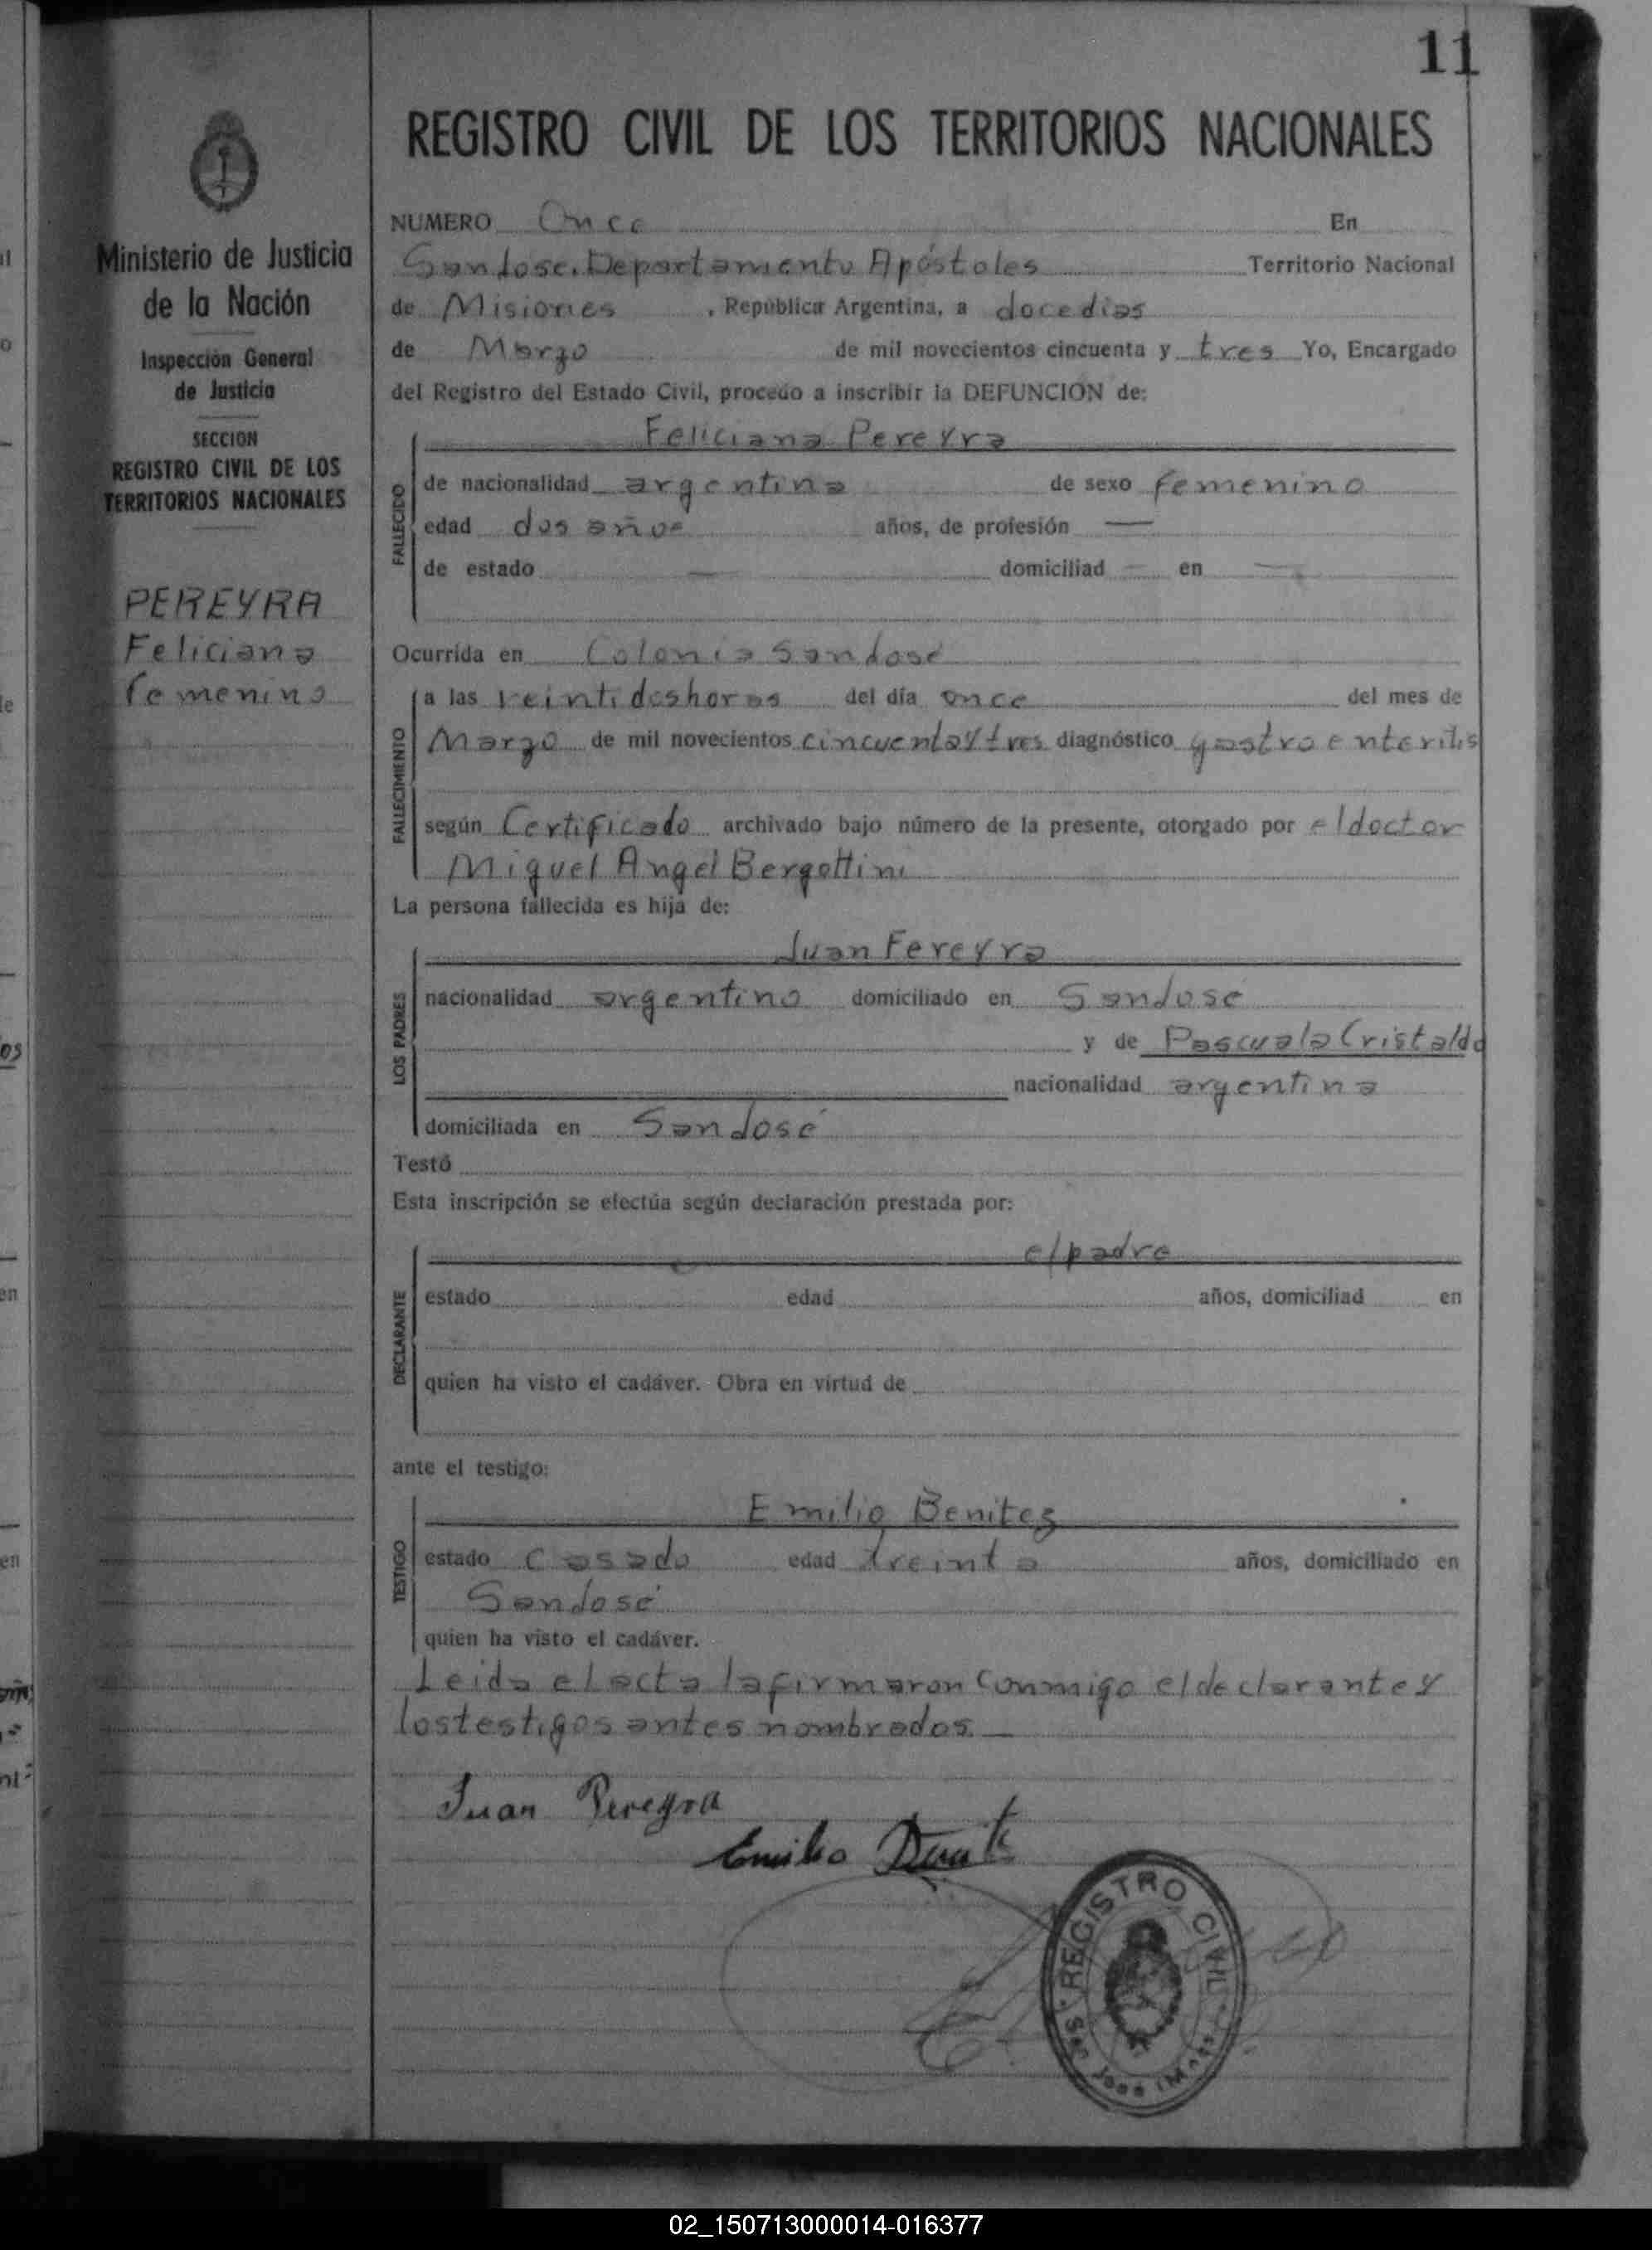 11
REGISTRO CIVIL DE LOS TERRITORIOS NACIONALES
Ministerio de Justicia
de la Nación
Inspección General
de Justicia
SECCION
REGISTRO CIVIL DE LOS
TERRITORIOS NACIONALES
PEREYRA
Feliciana
femenino
NUMERO Once En
San Jose. Departamento Apóstoles Territorio Nacional
de Misiones, República Argentina, a doce dias
de Marzo de mil novecientos cincuenta y tres Yo, Encargado
del Registro del Estado Civil, procedo a inscribir la DEFUNCION de:
Feliciana Pereyra
FALLECIDO
de nacionalidad argentina de sexo femenino
edad dos años años, de profesión —
de estado — domiciliad — en —
Ocurrida en Colonia San José
FALLECIMIENTO
a las veintidos horas del día once del mes de
Marzo de mil novecientos cincuenta y tres diagnóstico gastro enteritis
según Certificado archivado bajo número de la presente, otorgado por el doctor
Miguel Angel Bergottini
La persona fallecida es hija de:
LOS PADRES
Juan Pereyra
nacionalidad argentino domiciliado en San Jose
y de Pascuala Cristaldo
nacionalidad argentina
domiciliada en San José
Testó
Esta inscripción se efectúa según declaración prestada por:
DECLARANTE
el padre
estado edad años, domiciliad en
quien ha visto el cadáver. Obra en virtud de
ante el testigo:
TESTIGO
Emilio Benitez
estado Casado edad treinta años, domiciliado en
San José
quien ha visto el cadáver.
Leida el acta la firmaron conmigo el declarante y
los testigos antes nombrados.—
Juan Pereyra
Emilio
REGISTRO CIVIL
02_150713000014-016377